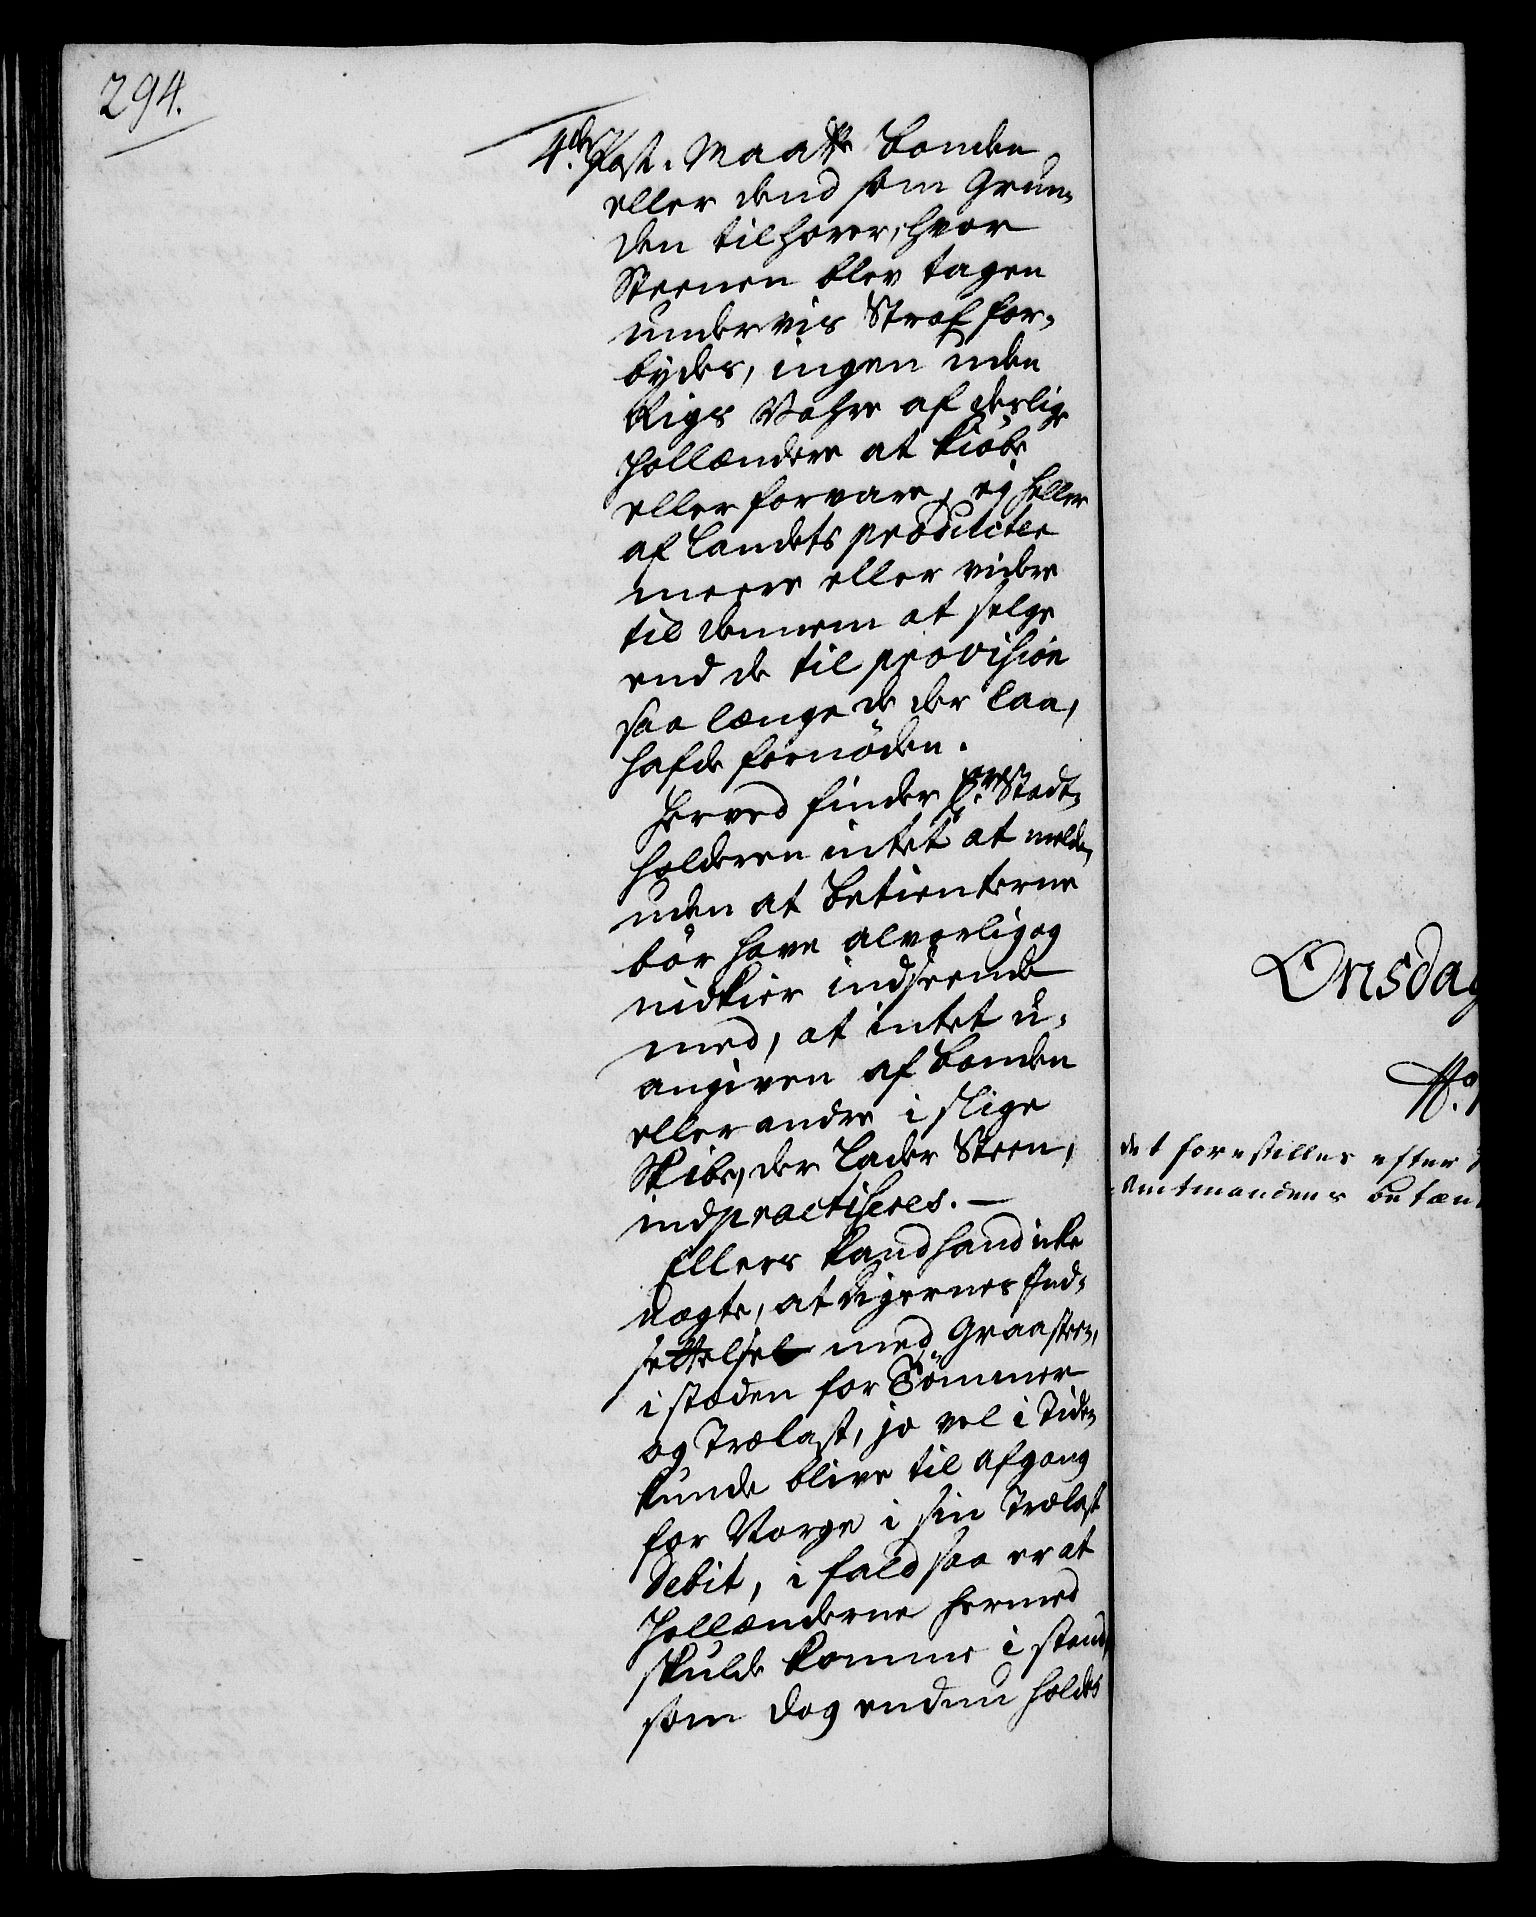 294.
4de Post. Maatte Bonden
eller dend som Grun-
den tilhører, hvor
Steenen blev tagen
under vis Straf for-
bydes, ingen uden
Rigs Vahre af deslige
Hollændere at kiöbe
eller forvare, ej heller
af Landets producter
meere eller videre
til dennem at selge
end de til provision
saa længe de der laa,
hafde fornöden.
Herved finder Hr. Stadt-
holderen intet at melde,
uden at Betienterne
bör have alvorlig og
nidkier indseende
med, at intet u-
angiven af Bonden
eller andre i slige
Skibe, der Lader Steen,
indpractiseres. —
Ellers kand hand icke
nægte, at Digernes Ind-
settelse med Graasteen,
i stæden for Tömmer
og Trælast, jo vel i Tiden
kunde blive til afgang
for Norge i sin Trælast
Debit, i fald saa er at
Hollænderne hermed
skulde komme i stand,
som dog endnu holdes
Onsdag
No.
det forestilles efter
Amtmandens betæn